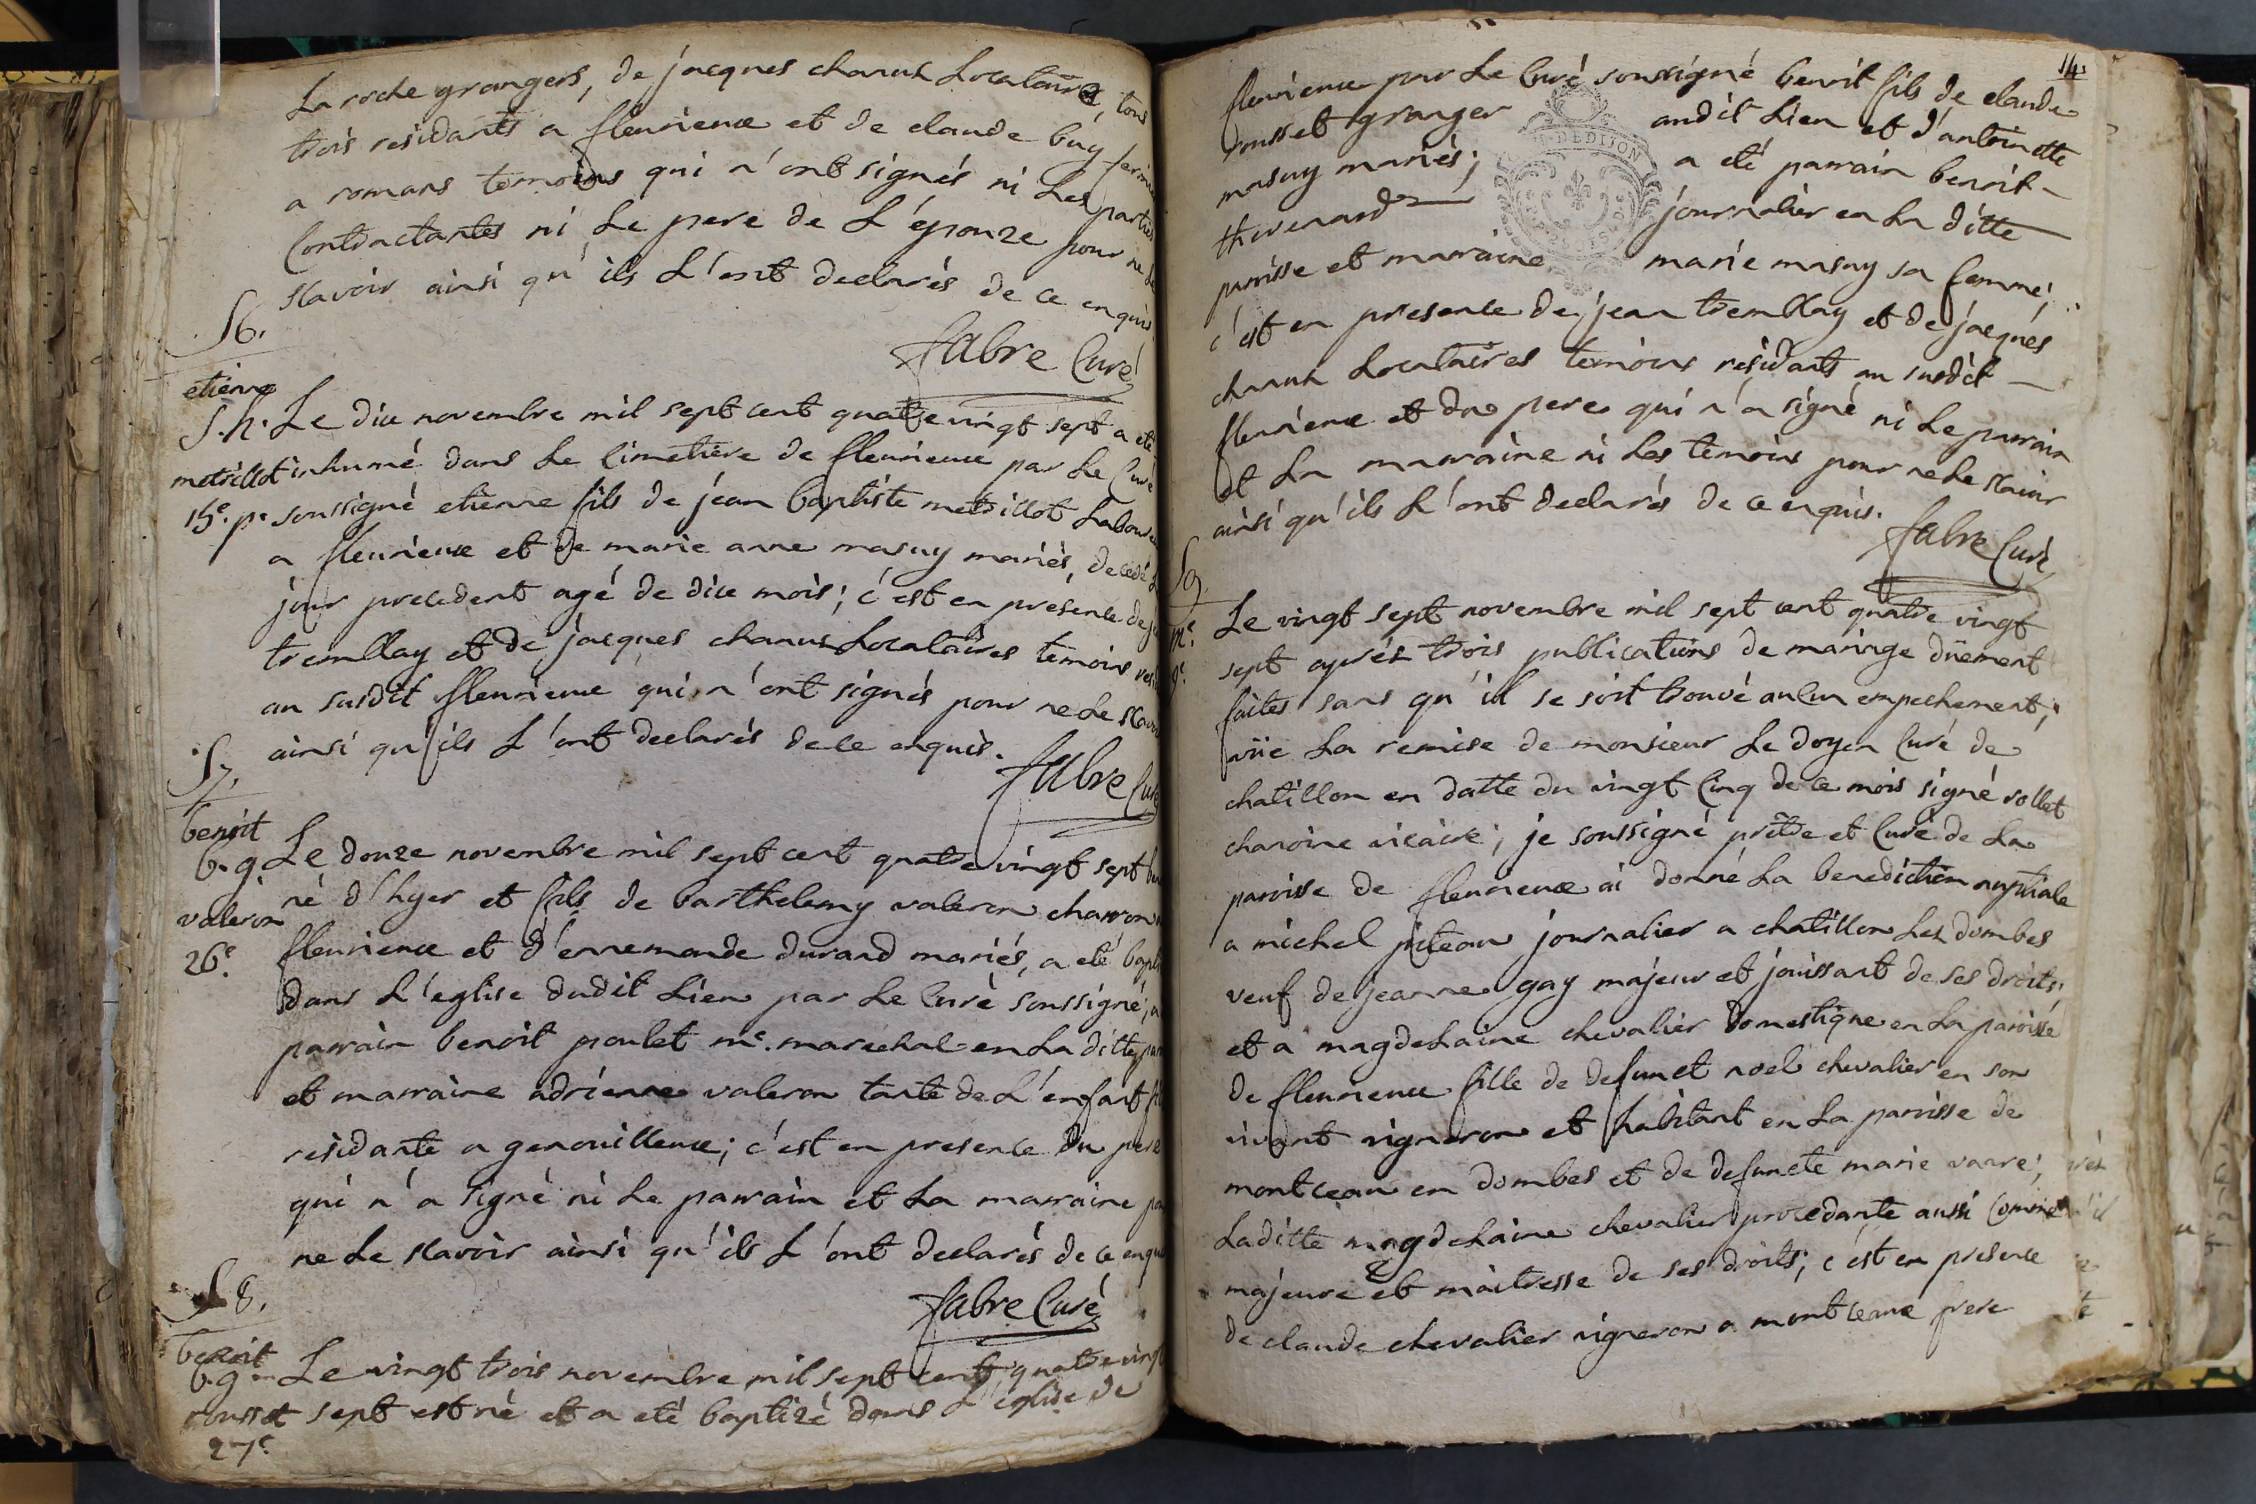 La roche grangers, de jacques chanut Locataire, tous
trois residants a fleurieux et de claude buy fermier
a romans temoins qui n'ont signés ni Les parties
Contractantes ni Le pere de L'épouze pour ne Le
sçavoir ainsi qu'ils L'ont declarés de ce enquis.
fabre Curé
56.
etienne
S.h. Le dix novembre mil sept cent quatre vingt sept a eté
metrillot inhumé dans Le Cimetière de fleurieux par Le Curé
15e. pe. soussigné etienne fils de jean baptiste metrillot Labour
a fleurieux et de marie anne masuy mariés, decedé L
jour precedent agé de dix mois; c'est en presence de j
tremblay et de jacques chanut Locataires temoins resi
au susdit fleurieux qui n'ont signés pour ne Le sçavoir
ainsi qu'ils L'ont declarés de ce enquis.
fabre Curé
57.
benoit
b.g. Le douze novembre mil sept cent quatre vingt sept
né d'hyer et fils de barthelemy valeron charron
valeron
26e. fleurieux et d'ennemonde durand mariés, a eté bapti
dans L'eglise dudit Lieu par Le Curé soussigné; a
parrain benoit poulet me. marechal en La ditte par
et marraine adrienne valeron tante de L'enfant
residante a genouilleux; c'est en presence du pere
qui n'a signé ni Le parrain et La marraine po
ne Le sçavoir ainsi qu'ils L'ont declarés de ce enquis
fabre Curé
58.
benoit
b.g. Le vingt trois novembre mil sept cent quatre vingt
rousset sept est né et a eté baptizé dans L'église de
27e.
14.
fleurieux par Le Curé soussigné benoit fils de claude
rousset granger audit Lieu et d'antoinette
masuy mariés; a eté parrain benoit
thevenard journalier en La ditte
paroisse et marraine marie masuy sa femme;
c'est en presence de jean tremblay et de jacques
chanut Locataires temoins residants au susdit
fleurieux et du pere qui n'a signé ni Le parrain
et La marraine ni Les temoins pour ne Le sçavoir
ainsi qu'ils L'ont declarés de ce enquis.
fabre Curé
59.
me. Le vingt sept novembre mil sept cent quatre vingt
ge. sept aprés trois publications de mariage düement
faites sans qu'il se soit trouvé aucun empechement;
vüe La remise de monsieur Le doyen Curé de
chatillon en datte du vingt Cinq de ce mois signé vollet
chanoine vicaire; je soussigné prêtre et Curé de La
paroisse de fleurieux ai donné La benediction nuptiale
a michel piteau journalier a chatillon Les dombes
veuf de jeanne gay majeur et jouissant de ses droits;
et a magdeLaine chevalier Domestique en La paroisse
de fleurieux fille de defunct noel chevalier en son
vivant vigneron et habitant en La paroisse de
montceaux en dombes et de defuncte marie vavre;
Laditte magdeLaine chevalier procedante aussi Comme
majeure et maitresse de ses droits; c'est en presence
de claude chevalier vigneron a montceaux frere